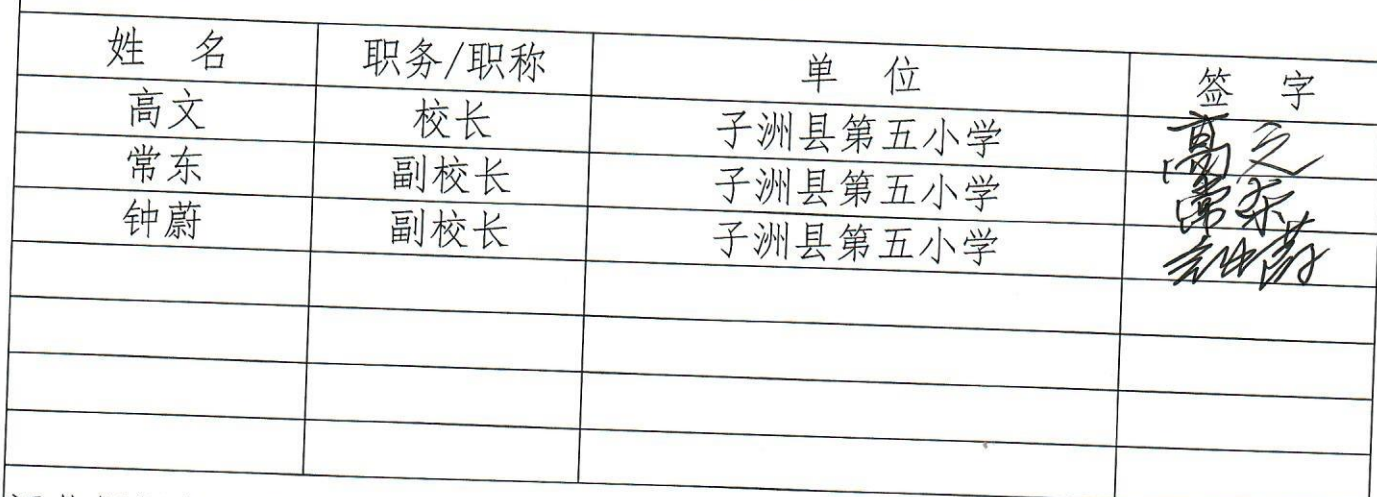 姓 名 职务/职称 单 位 签 字
高文 校长 子洲县第五小学 高文
常东 副校长 子洲县第五小学 常东
钟蔚 副校长 子洲县第五小学 钟蔚